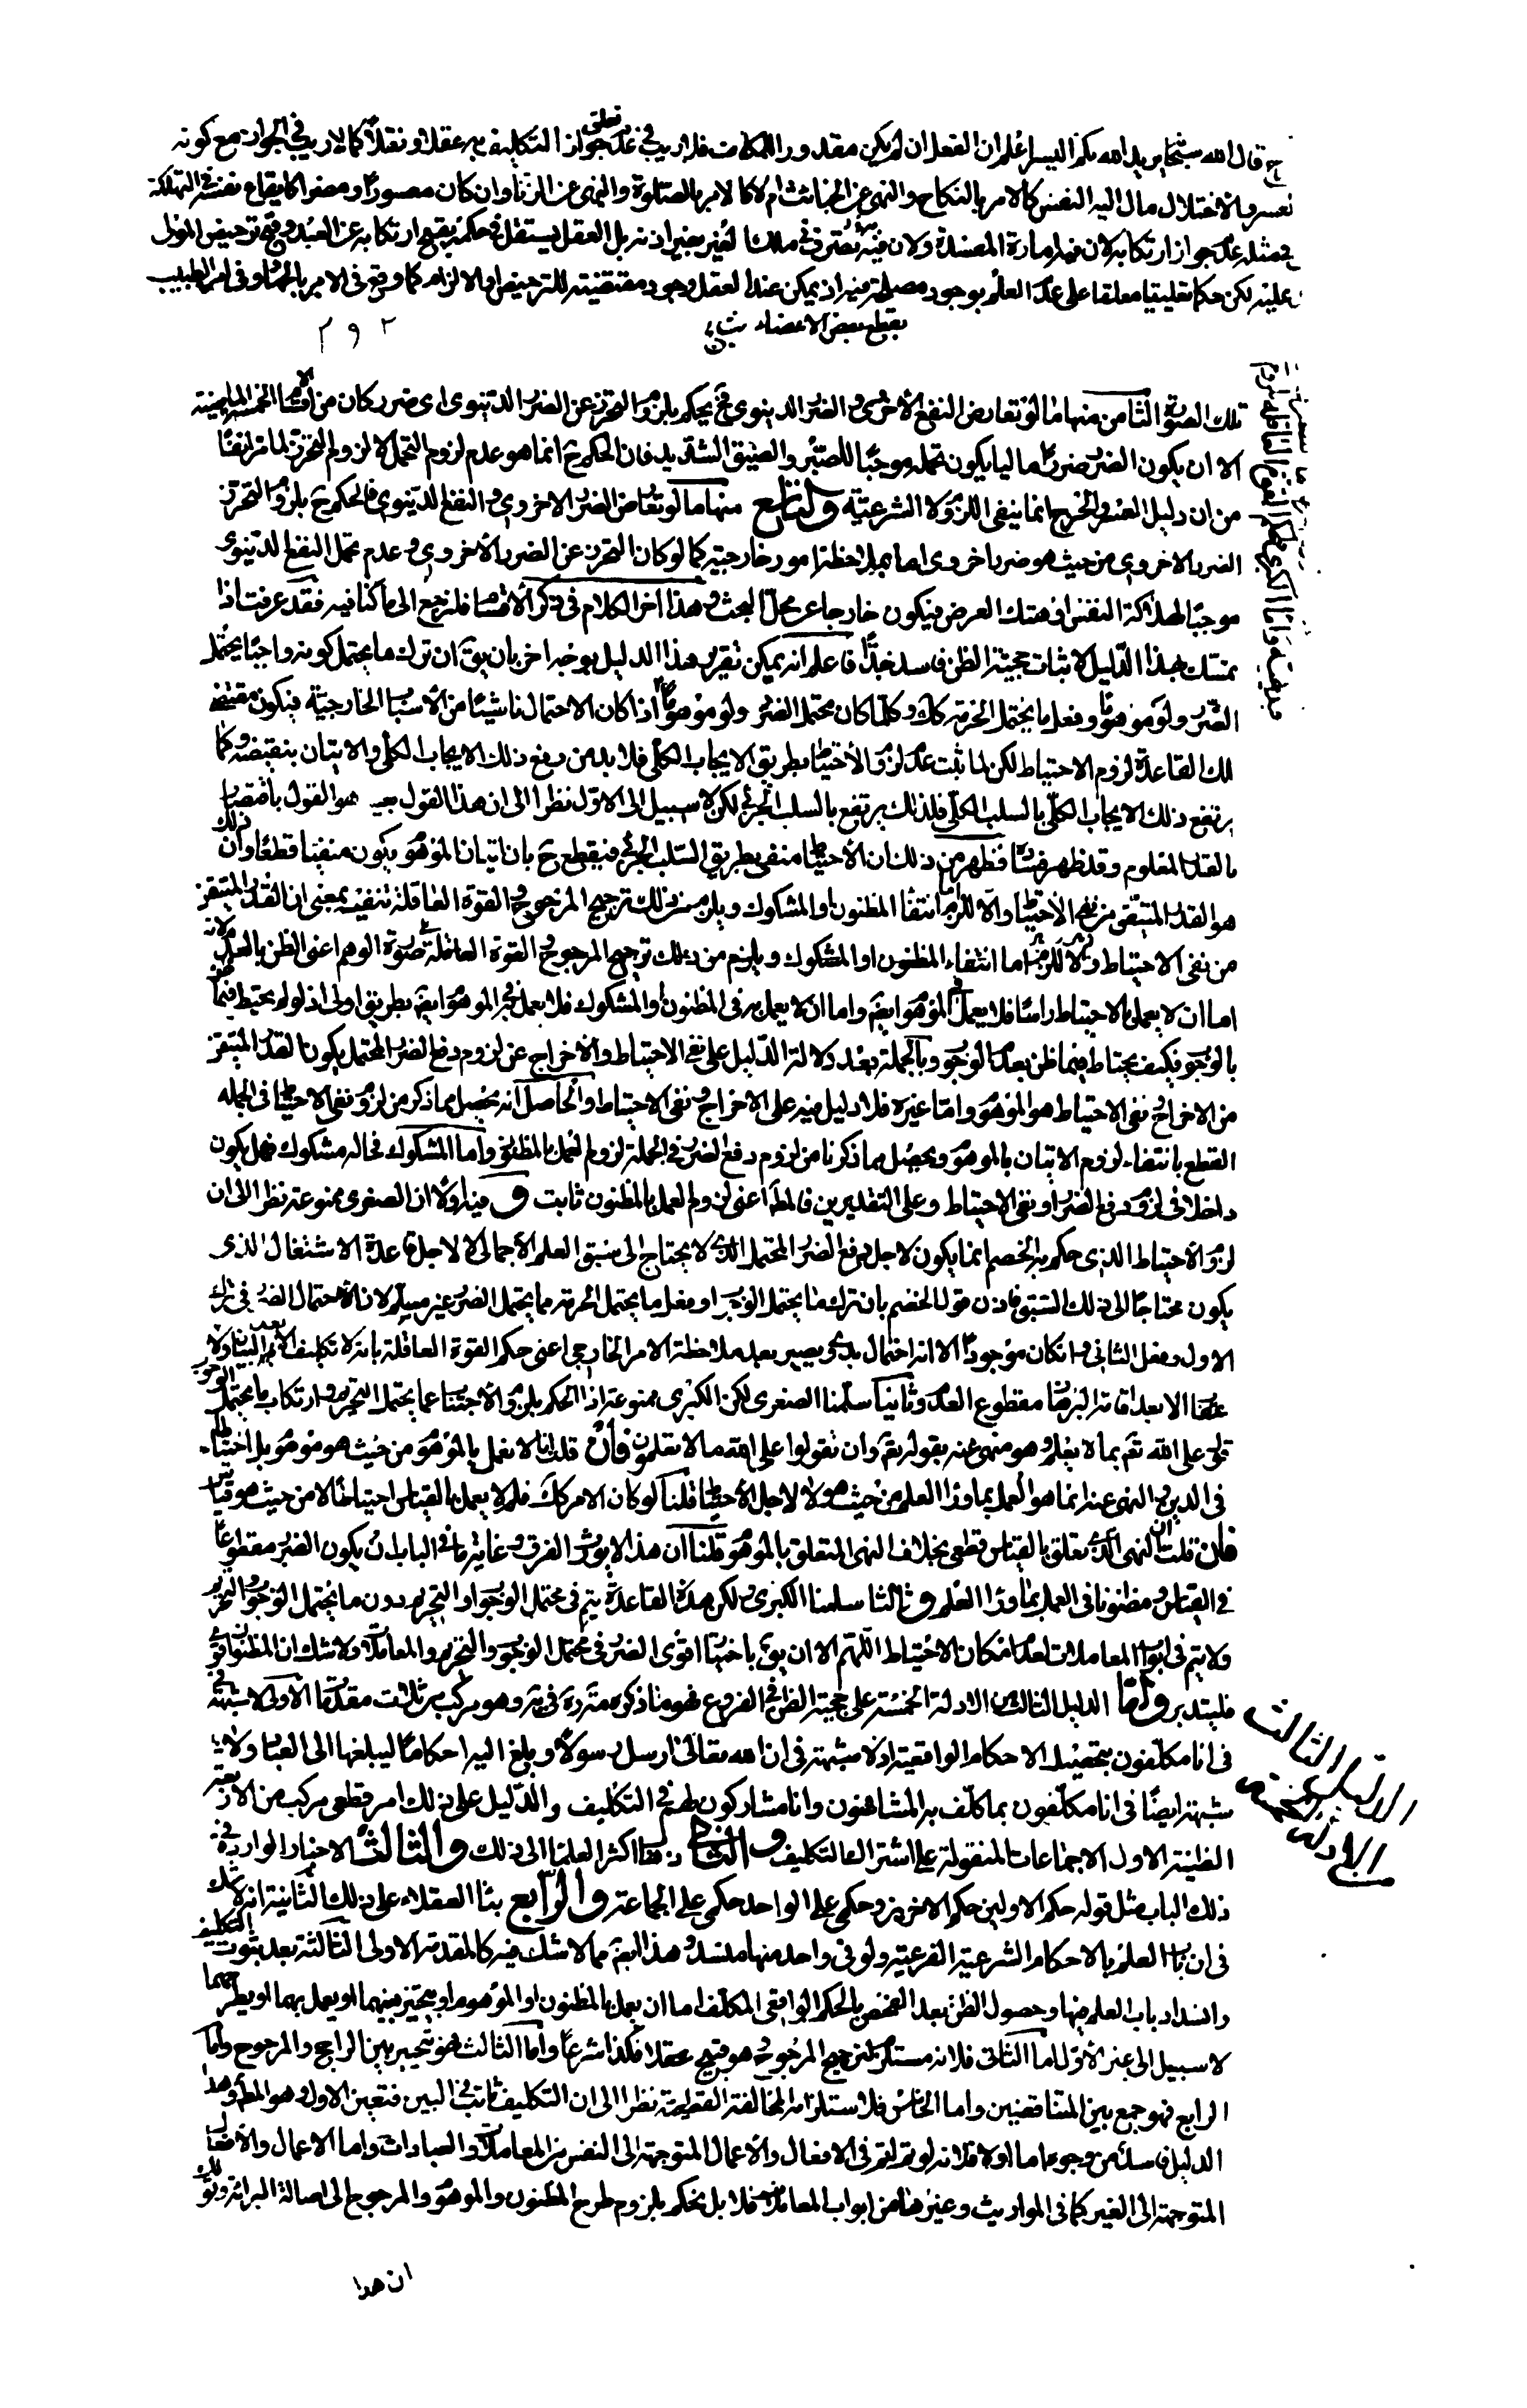 قال الله سبحانه يريد الله بكم اليسر اعلم ان الفعل ان لم يكن مقدورا للمكلف فلا ريب في عدم جواز تعلق التكليف به عقلا ونقلا كما لا ريب في الجواز مع كونه
في مثله عدم جواز ارتكابه لان فيه امارة المفسدة ولان فيه تصرف في ملك الغير بغير اذنه بل العقل يستقل في حكمه بقبح ارتكابه عن العبد وقبح ترخيص المولى
عليه لكن حكما تعليقيا معلقا على عدم العلم بوجود مصلحة فيه اذ يمكن عند العقل وجود مقتضية للترخيص او الالزام كما وقع في الامر بالجهاد وفي امر الطبيب
بقطع بعض الاعضاء
٢٩٢
تلك الصورة الثامن منها ما لو تعارض النفع الاخروي والضرر الدنيوي فح يحكم بلزوم التحرز عن الضرر الدنيوي اي ضرر كان من الاقسام الخمسة الماضية
الا ان يكون الضرر ضررا ماليا يكون تحمله موجبا للصبر والضيق الشديد فان الحكم ح انما هو عدم لزوم التحمل لا لزوم التحرز لما مر انفا
من ان دليل العسر والحرج انما ينفي اللزوم لا الشرعية والتاسع منها ما لو تعارض الضرر الاخروي والنفع الدنيوي فالحكم ح بلزوم التحرز
الضرر الاخروي من حيث هو ضرر اخروي اما بملاحظة امور خارجية كما لو كان التحرز عن الضرر الاخروي وعدم تحمل النفع الدنيوي
موجبا لهلاكة النفس او هتك العرض فيكون خارجا عن محل البحث وهذا اخر الكلام في ذكر الاقسام فلنرجع الى ما كنا فيه فقد عرفت اذا
تمسك بهذا الدليل لاثبات حجية الظن فاسد جدا فاعلم انه يمكن تقرير هذا الدليل بوجه اخر بان يق ان ترك ما يحتمل كونه واجبا يحتمل
الضرر ولو موهوما وفعل ما يحتمل الحرمة كك وكلما كان محتمل الضرر ولو موهوما اذا كان الاحتمال ناشيا من الاسباب الخارجية فيكون مقتضى
تلك القاعدة لزوم الاحتياط لكن لما ثبت عدم لزوم الاحتياط بطريق الايجاب الكلي فلا بد من رفع ذلك الايجاب الكلي والاتيان بنقيضه وكما
يرتفع ذلك الايجاب الكلي بالسلب الكلي فلذلك يرتفع بالسلب الجزئي لكن لا سبيل الى الاول نظرا الى ان هذا القول هو القول باقتصار
بالقدر المعلوم وقد ظهر فساده فظهر من ذلك ان الاحتياط منفي بطريق السلب الجزئي فنقطع ح بان اتيان الموهوم يكون منفيا قطعا وان ذلك
هو القدر المتيقن من نفي الاحتياط والا للزم اما انتفاء المظنون او المشكوك ويلزم من ذلك ترجيح المرجوح والقوة العاقلة تنفيه بمعنى ان القدر المتيقن
من نفي الاحتياط والا للزم اما انتفاء المظنون او المشكوك ويلزم من ذلك ترجيح المرجوح القوة العاقلة صورة الوهم اعني الظن بالعدم لانه
اما ان لا يعمل بالاحتياط راسا فلا يعمل في الموهوم ايضا واما ان لا يعمل به في المظنون او المشكوك فلا يعمل في الموهوم ايضا بطريق اولى اذ لو لم يحتط فيما ظن
بالوجوب فكيف يحتاط فيما ظن بعدم الوجوب وبالجملة بعد دلالة الدليل على نفي الاحتياط والاخراج عن لزوم دفع الضرر المحتمل يكون القدر المتيقن
من الاخراج ونفي الاحتياط هو الموهوم واما غيره فلا دليل فيه على الاخراج ونفي الاحتياط والحاصل انه يحصل مما ذكر من لزوم نفي الاحتياط في الجملة
القطع بانتفاء لزوم الاتيان بالموهوم ويحصل مما ذكرنا من لزوم دفع الضرر في الجملة لزوم العمل بالمظنون واما المشكوك فحاله مشكوك فهل يكون
داخلا في لزوم دفع الضرر او نفي الاحتياط وعلى التقديرين فالمط اعني لزوم العمل بالمظنون ثابت وفيه اولا ان الصغرى ممنوعة نظرا الى ان
لزوم الاحتياط الذي حكم به الخصم انما يكون لاجل دفع الضرر المحتمل الذي لا يحتاج الى سبق العلم الاجمالي لا لاجل قاعدة الاشتغال الذي
يكون محتاجا الى ذلك السبق فاذن قول الخصم بان ترك ما يحتمل الوجوب او فعل ما يحتمل الحرمة مما يحتمل الضرر غير مسلم لان الاحتمال الضرر في ترك
الاول وفعل الثاني وان كان موجودا الا انه احتمال بدوي ويصير بعد ملاحظة الامر الخارجي اعني حكم القوة العاقلة بانه لا تكليف الا بعد البيان ولا
عقاب الا بعد اقامة البرهان مقطوع العدم وثانيا سلمنا الصغرى لكن الكبرى ممنوعة اذ الحكم بلزوم الاجتناب عما يحتمل التحريم وارتكاب ما يحتمل الوجوب
على الله تعم بما لا يعلم وهو منهي عنه بقوله تعم وان تقولوا على الله ما لا تعلمون فان قلت انا لا نعمل بالموهوم من حيث هو موهوم بل احتياط
في الدين والنهي عنه انما هو العمل بما وراء العلم من حيث هو لا لاجل الاحتياط قلنا لو كان الامر كك فلم لا يعمل بالقياس احتياطا لا من حيث هو قياس
فان قلت ان النهي الذي تعلق بالقياس قطعي بخلاف النهي المتعلق بالموهوم قلنا ان هذا لا يورث الفرق وغاية ما في الباب ان يكون الضرر مقطوعا
في القياس ومظنونا في العمل بما وراء العلم وثالثا سلمنا الكبرى ولكن هذه القاعدة يتم في محتمل الوجوب او التحريم دون ما يحتمل الوجوب والتحريم
ولا يتم في ابواب المعاملات لعدم امكان الاحتياط اللهم الا ان يق باختيار اقوى الضرر في محتمل الوجوب والتحريم والمعاملات ولا شك ان المظنون اقوى
فليتدبر واما الدليل الثالث من الادلة الخمسة على حجية الظن في الفروع فهو ما ذكره وهو مركب من ثلاث مقدمات الاولى لا شبهة
في انا مكلفون بتحصيل الاحكام الواقعية اذ لا شبهة في ان الله تعالى ارسل رسولا وبلغ اليه احكاما ليبلغها الى العباد ولا
شبهة ايضا في انا مكلفون بما كلف به المشافهون وانا مشاركون لهم في التكليف والدليل على ذلك امر قطعي مركب من الاربعة
الظنية الاول الاجماعات المنقولة على اشتراك التكليف والثاني ذهاب اكثر العلماء الى ذلك والثالث الاخبار الواردة في
ذلك الباب مثل قوله حكم الاولين حكم الاخرين وحكمي على الواحد حكمي على الجماعة والرابع بناء العقلاء على ذلك الثانية انه لا شك
في ان باب العلم بالاحكام الشرعية الفرعية ولو في واحد منها منسد وهذا ايضا مما لا شك فيه كالمقدمة الاولى الثالثة بعد ثبوت التكليف
وانسداد باب العلم فيها وحصول الظن بعد الفحص بالحكم الواقعي المكلف اما ان يعمل بالمظنون او الموهوم او يتخير بينهما او يعمل بهما او يطرحهما
لا سبيل الى غير الاول اما الثاني فلانه مستلزم لترجيح المرجوح وهو قبيح عقلا فكذا شرعا واما الثالث فهو تخيير بين الراجح والمرجوح واما
الرابع فهو جمع بين المتناقضين واما الخامس فلاستلزامه المخالفة القطعية نظرا الى ان التكليف ثابت في البين فتعين الاول وهو المط وهذا
الدليل فاسد من وجوه اما اولا فلانه لو تم لتم في الافعال والاعمال المتوجهة الى النفس من المعاملات والعبادات واما الاعمال والافعال
المتوجهة الى الغير كما في المواريث وغيرها من ابواب المعاملات فلا بل نحكم بلزوم طرح المظنون والموهوم والرجوع الى اصالة البرائة وتوك
ان هذا
الدليل الثالث
من الادلة الخمسة